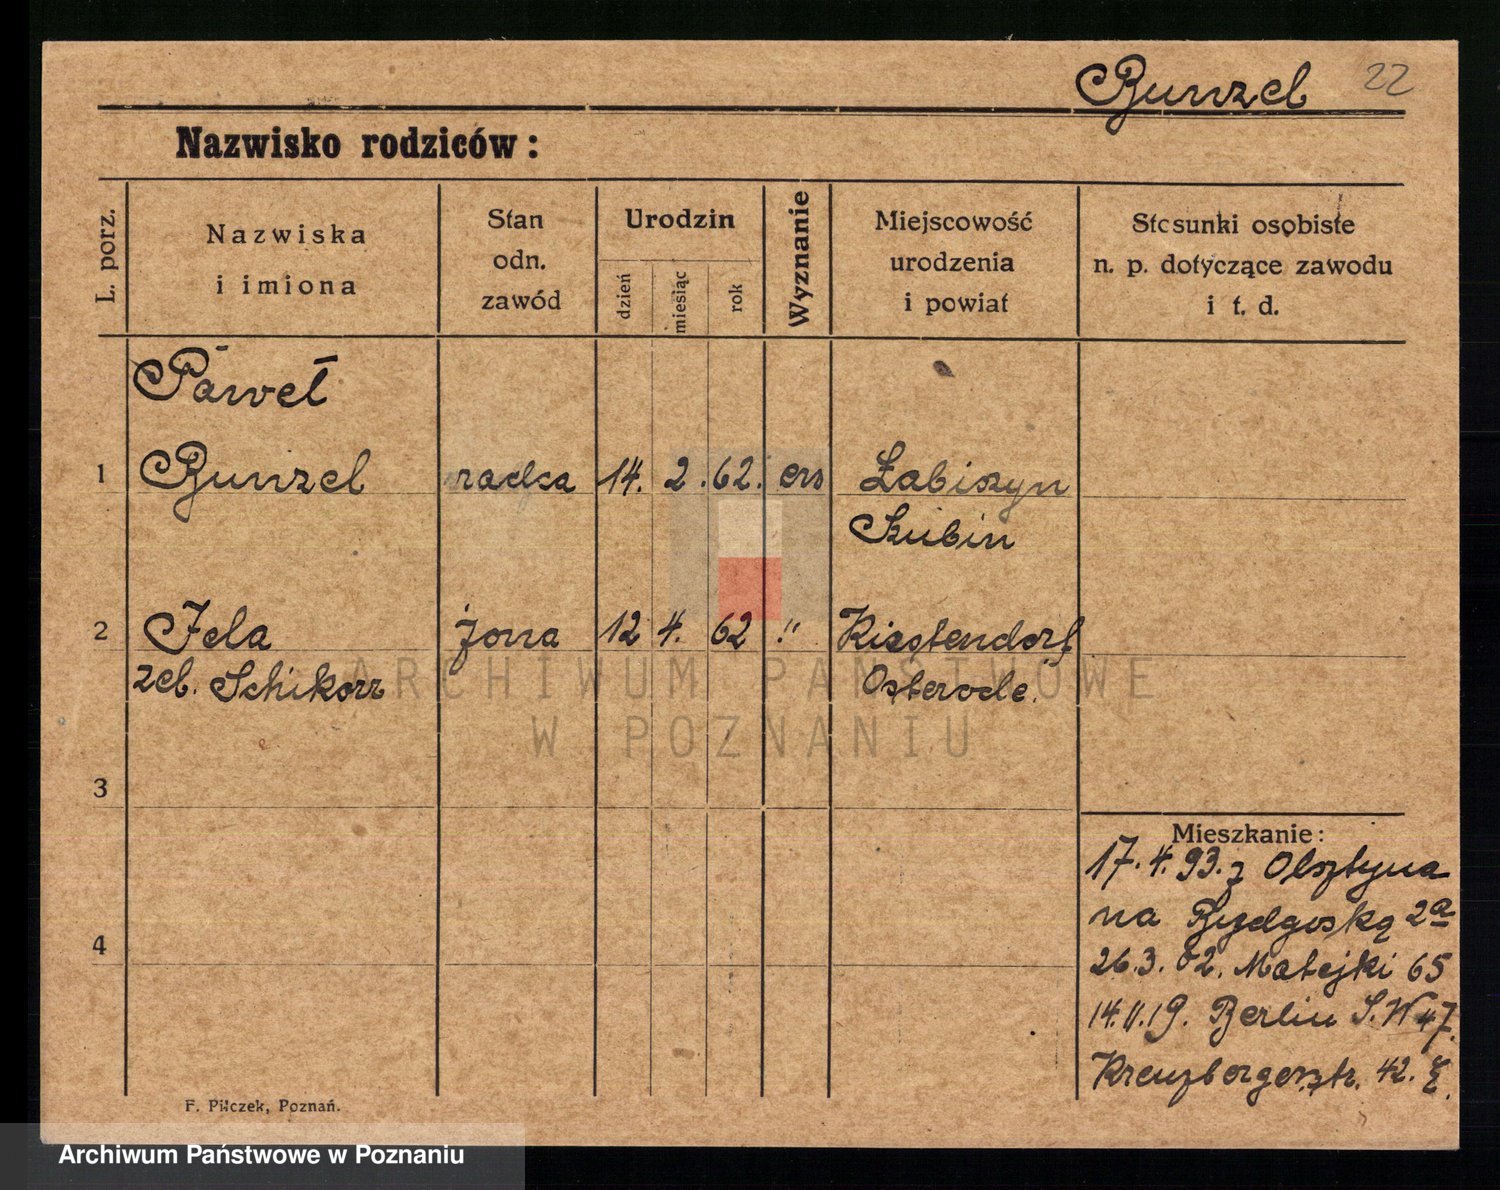 Bunzel 22
Nazwisko rodziców:
L. porz.
Nazwiska
i imiona
Stan
odn.
zawód
Urodzin
dzień
miesiąc
rok
Wyznanie
Miejscowość
urodzenia
i powiat
Stosunki osobiste
n. p. dotyczące zawodu
i t. d.
Paweł
1 Bunzel radca 14. 2. 62. ew Łabiszyn
Szubin
2 Jela żona 12 4. 62 " Kiestendorf
zeb. Schikorr Osterode.
ARCHIWUM PAŃSTWOWE
W POZNANIU
3
Mieszkanie:
17. 4. 93. z Olsztyna
na Bydgoską 2a
4
26.3. 02. Matejki 65
14.11.19. Berlin S.W 47.
Kreuzbergerstr. 42.
F. Pilczek, Poznań.
Archiwum Państwowe w Poznaniu